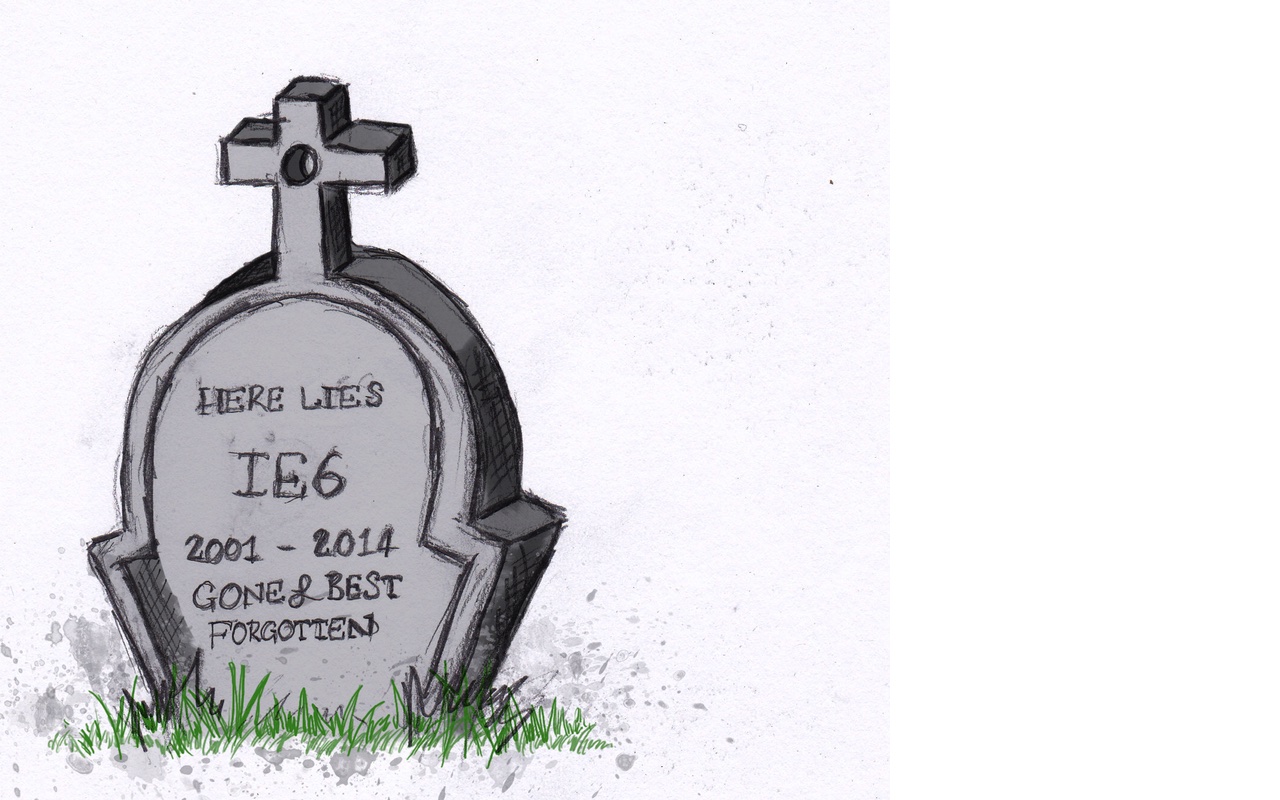 HERE LIES
IE6
2001 - 2014
GONE & BEST
FORGOTTEN